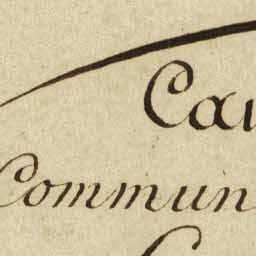 Cau
Commun